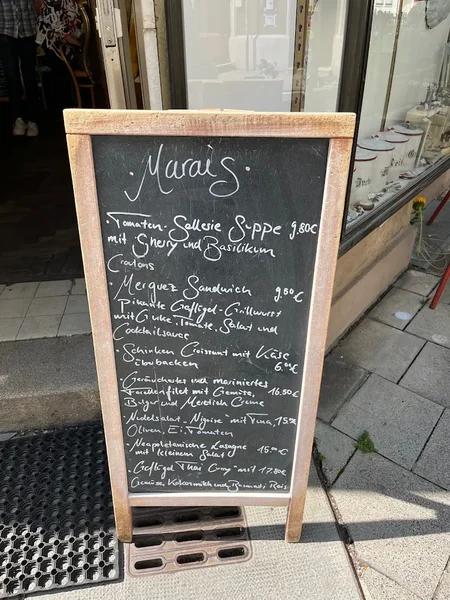 · Marais ·
Tomaten - Sellerie Suppe 9.80€
mit Sherry und Basilikum
Croutons
· Merguez Sandwich 9.80€
Pikante Geflügel-Grillwurst
mit Gurke, Tomate, Salat und
Cocktailsauce
· Schinken Croissant mit Käse
überbacken 6.00€
· Geräuchertes und mariniertes
Forellenfilet mit Gemüse, 16.50€
Bulgur und Meerrettich Creme
· Nudelsalat - Niçoise mit Tuna, 15.50
Oliven, Ei, Tomaten
· Neapoletanische Lasagne
mit kleinem Salat 15.00€
· Geflügel Thai Curry mit 17.80€
Gemüse, Kokosmilch und Basmati Reis